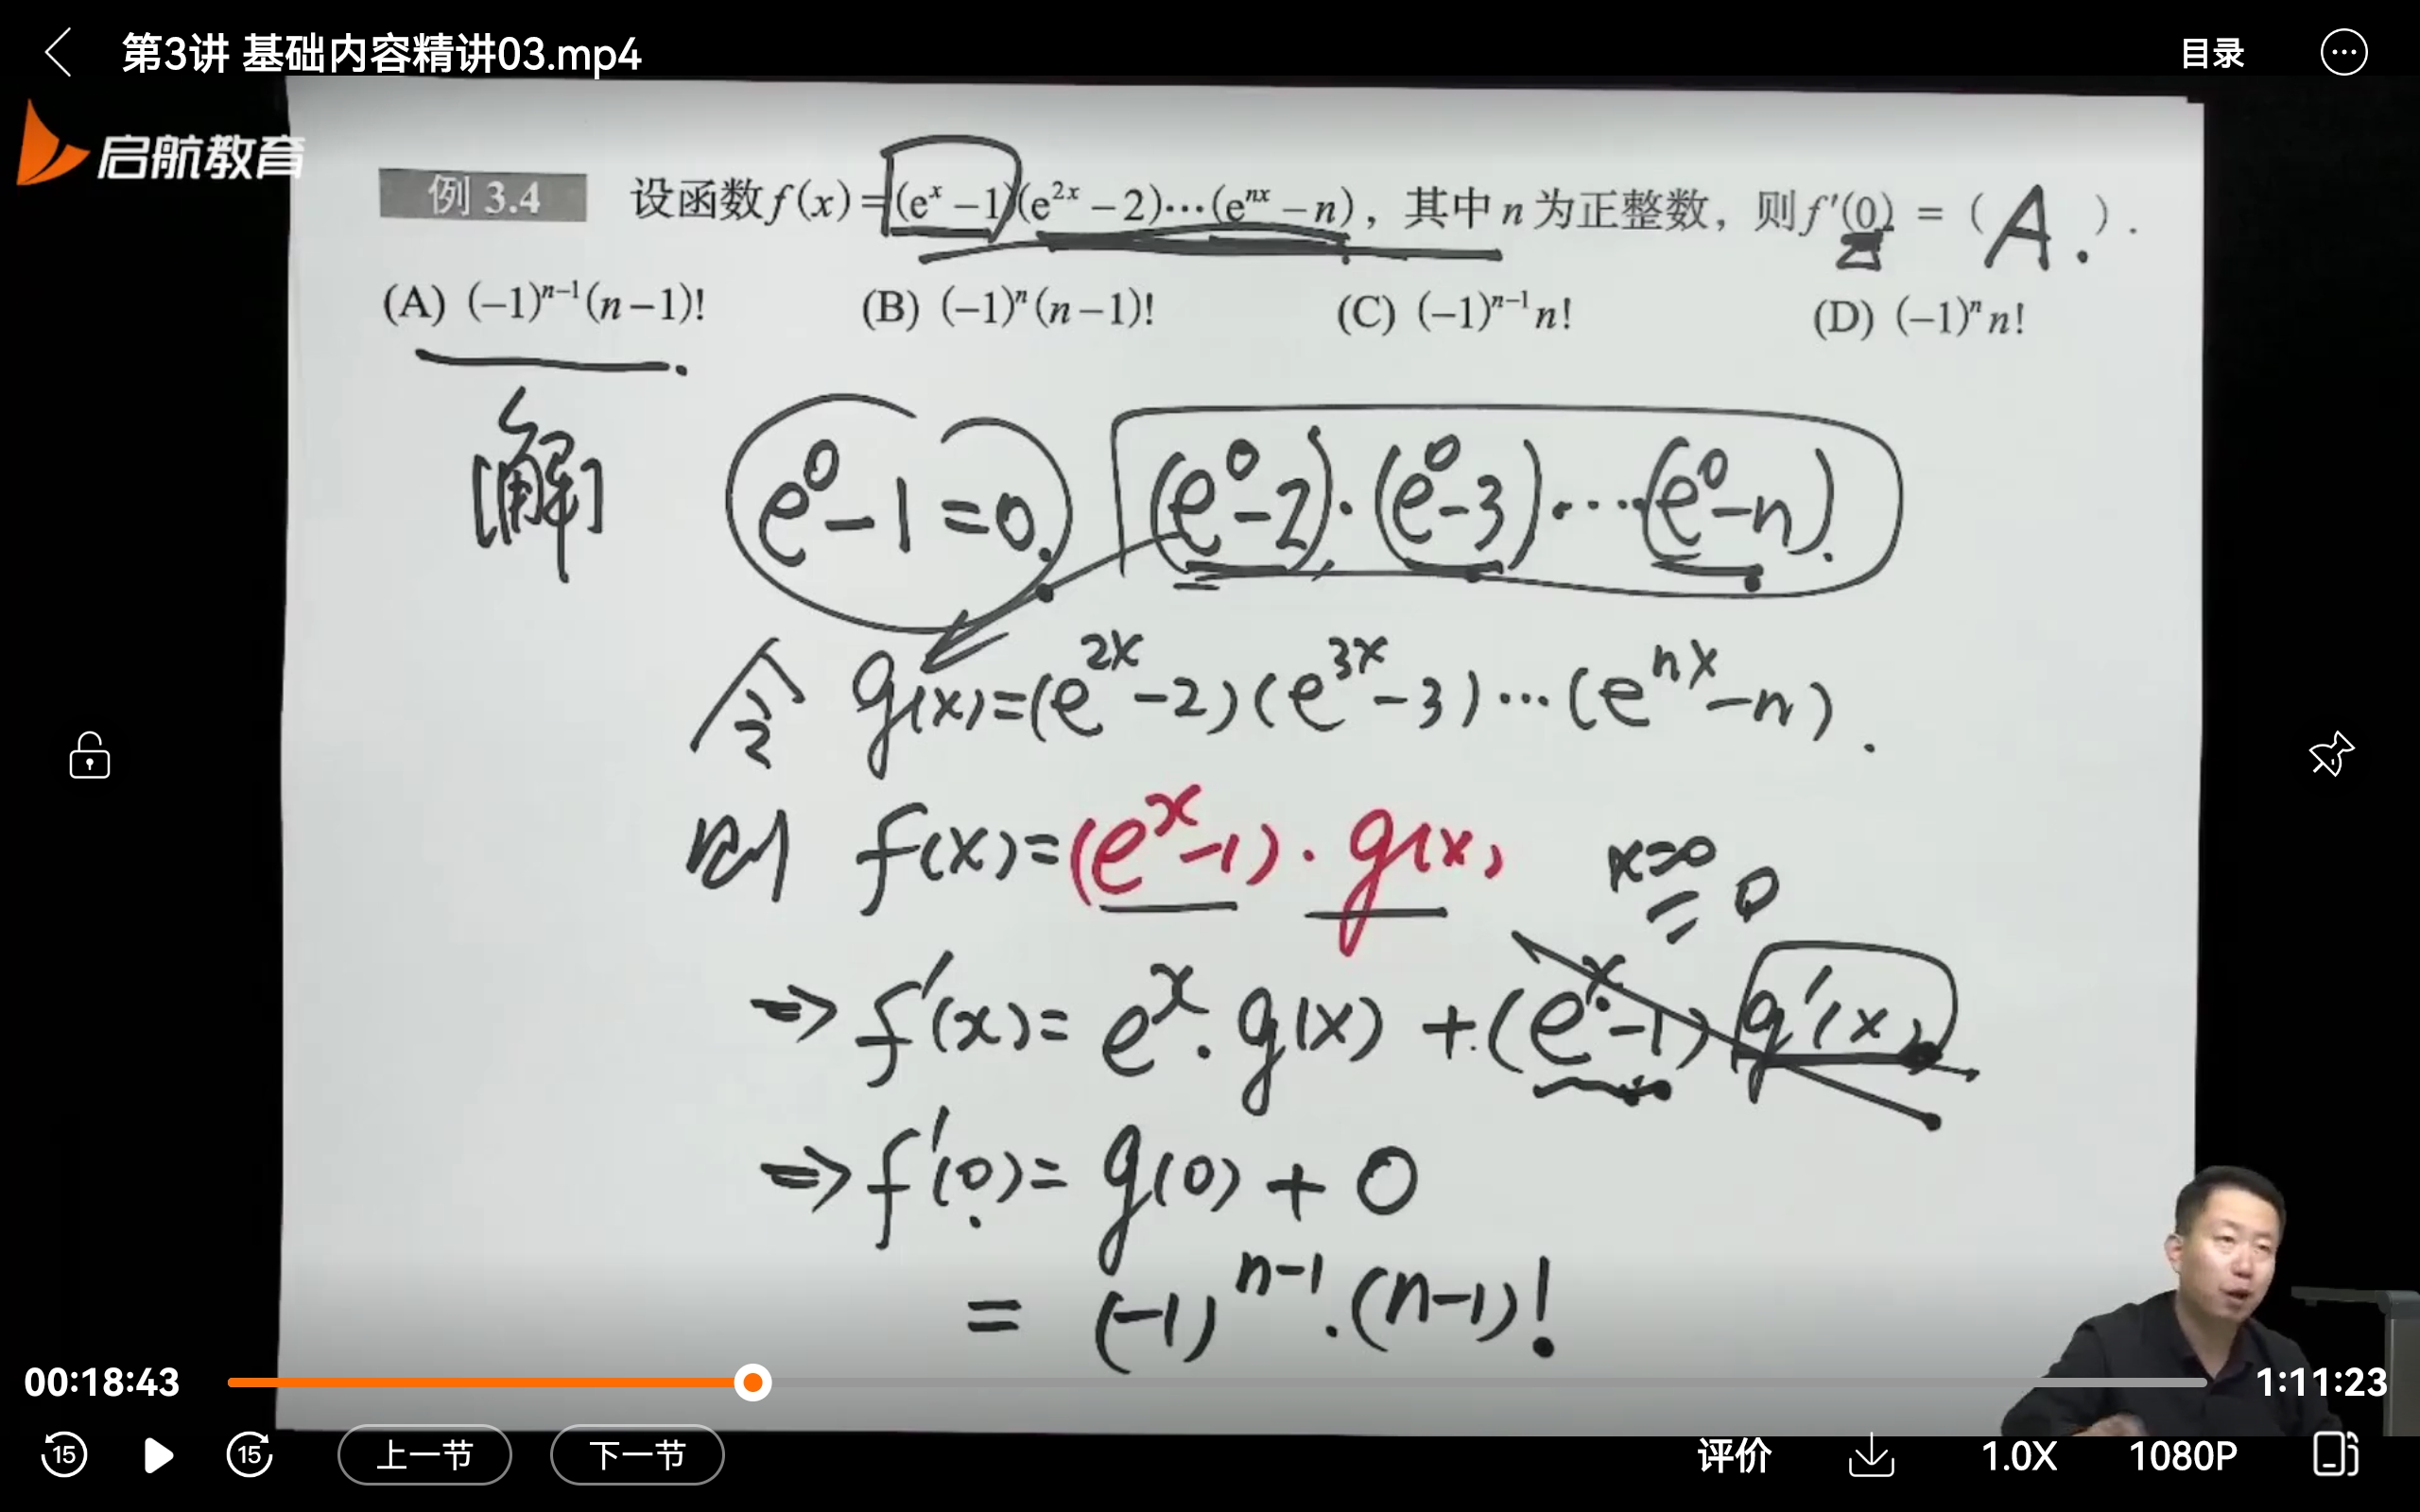 第3讲 基础内容精讲03.mp4
目录
启航教育
例 3.4 设函数f(x)=(eˣ−1)(e²ˣ−2)⋯(eⁿˣ−n)，其中 n 为正整数，则f′(0) = ( A. ).
(A) (−1)ⁿ⁻¹(n−1)! (B) (−1)ⁿ(n−1)! (C) (−1)ⁿ⁻¹n! (D) (−1)ⁿn!
[解] e⁰−1=0. (e⁰−2)·(e⁰−3)·⋯(e⁰−n).
令 g(x)=(e²ˣ−2)(e³ˣ−3)⋯(eⁿˣ−n).
则 f(x)=(eˣ−1)·g(x)
x=0
= 0
⇒ f′(x)= eˣ·g(x) +(eˣ−1) g′(x)
⇒ f′(0)= g(0) + 0
= (−1)ⁿ⁻¹·(n−1)!
00:18:43
1:11:23
15
15
上一节
下一节
评价
1.0X
1080P